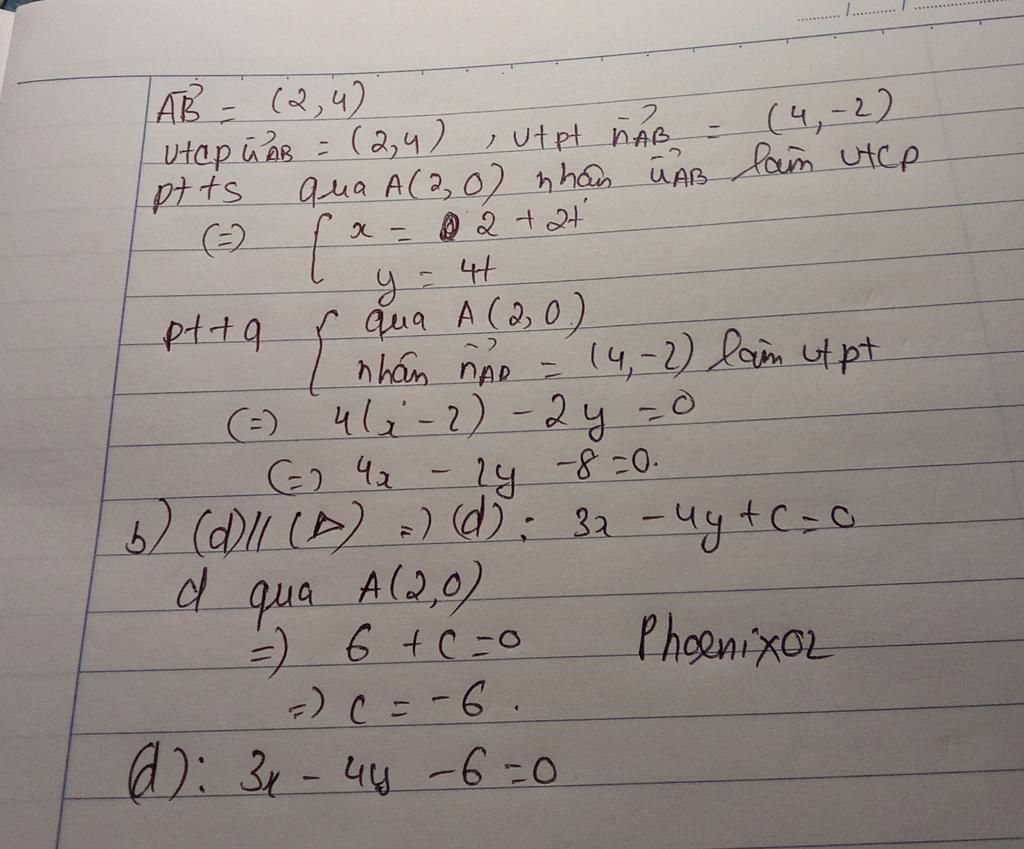 AB⃗ = (2,4)
vtcp u⃗AB = (2,4) , vtpt n⃗AB = (4,-2)
ptts qua A(2,0) nhân u⃗AB làm vtcp
(=) { x = 2 + 2t
y = 4t
pttq { qua A(2,0)
nhân n⃗AB = (4,-2) làm vtpt
(=) 4(x-2) - 2y = 0
(=) 4x - 2y -8=0.
b) (d)// (Δ) =) (d): 3x -4y+c=0
d qua A(2,0)
=) 6 + c=0 Phoenix02
=) c = -6 .
(d): 3x - 4y -6=0